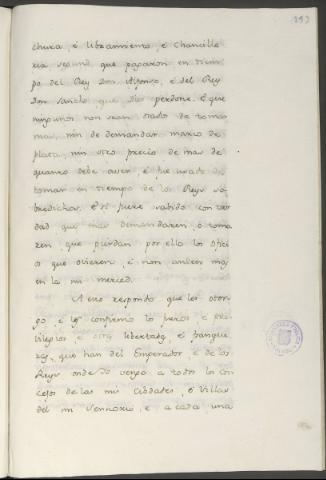 chura, é libramiento, é Chancille
ria segund que pagaron en tiem
po del Rey Don Alfonso, é del Rey
Don Sancho que Dios perdone. E que
ningunos non sean osados de tomar
mas, nin de demandar marco de
plata, nin otro precio de mas de
quanto debe aver, é fue usado de
tomar en tiempo de los Reyes so-
bredichos. E si fuere sabido con ver
dad que mas demandaren, ó toma
ren, que pierdan por ello los ofici
os que ovieren, é non anden mas
en la mi merced.
A esto respondo que les otor-
go, é les confirmo los fueros é pri
vilegios é libertades é franque
zas, que han del Emperador é de los
Reyes onde Yo vengo a todos los con
cejos de las mis Cibdades, é Villas
del mi Sennorio, é a cada una